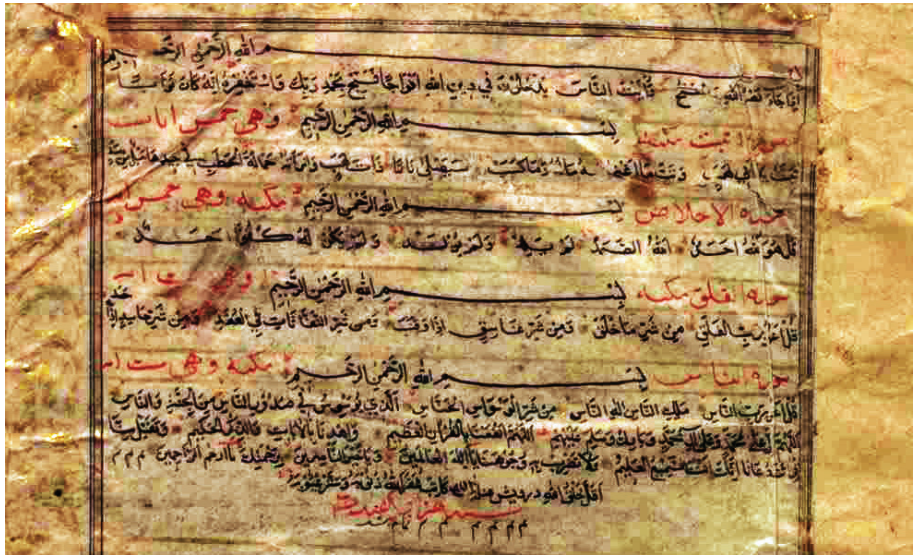 بسم الله الرحمن الرحيم
اذا جاء نصر الله و الفتح و رأيت الناس يدخلون في دين الله افواجا فسبح بحمد ربك واستغفره انه كان توابا
سورة تبت مكية بسم الله الرحمن الرحيم وهي خمس ايات
تبت يدا ابي لهب وتب ما اغنى عنه ماله وما كسب سيصلى نارا ذات لهب وامرأته حمالة الحطب في جيدها حبل من
سورة الاخلاص بسم الله الرحمن الرحيم مكية وهي خمس
قل هو الله احد الله الصمد لم يلد ولم يولد ولم يكن له كفوا احد
سورة الفلق مكية بسم الله الرحمن الرحيم
قل اعوذ برب الفلق من شر ما خلق ومن شر غاسق اذا وقب ومن شر النفاثات في العقد ومن شر حاسد اذا حسد
سورة الناس بسم الله الرحمن الرحيم مكية وهي ست
قل اعوذ برب الناس ملك الناس اله الناس من شر الوسواس الخناس الذي يوسوس في صدور الناس من الجنة والناس
اللهم صل على محمد وعلى آل محمد وبارك وسلم عليهم اللهم انفعنا بالقرآن العظيم واهدنا بالآيات والذكر الحكيم وتقبل منا
انك انت السميع العليم العالمين برحمتك يا ارحم الراحمين م م م
اقل خلق الله درويش
م م م م م تمام شد